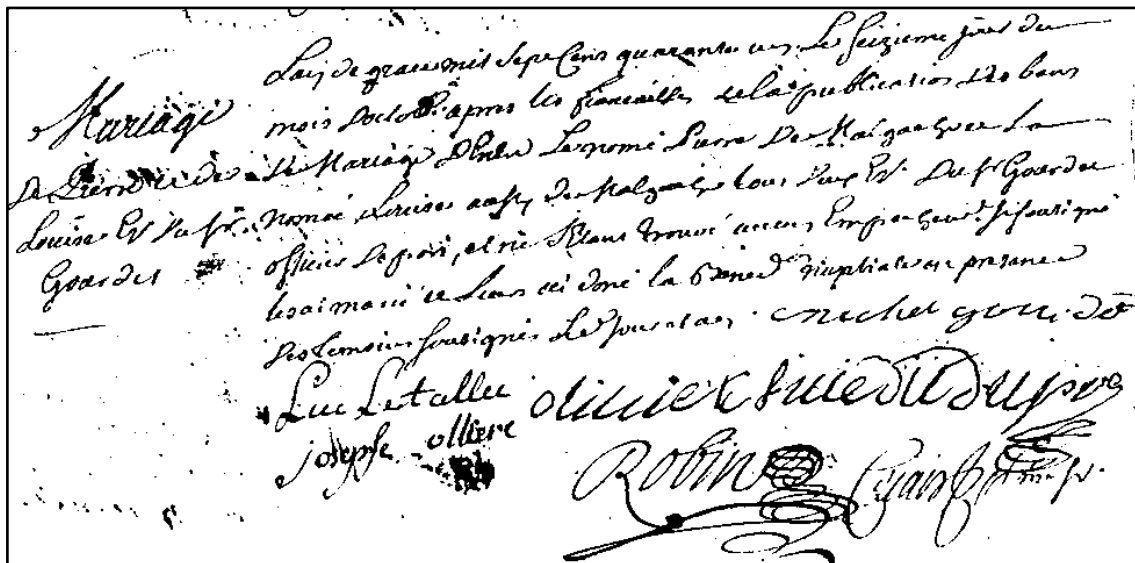 Mariage
De Pierre et de
Louise Es. du Sr.
Gourdet
Lan de grace mil sept Cens quarante un Le seizieme jour du
mois Doctob. apres les fiancailles et la publication des bans
De Mariage Entre Le nomé Pierre De Malgache et La
nomée Louise aussy de Malgache tous deux Es. du Sr Gourdet
officier de port, et ne setant trouvé aucun Empechemt. Je sousigné
les ai marié et leurs ai doné la Bened. nuptiale en presance
des temoins sousignés Le Jour et an. michel gourdet
Luc Letallec
joseph olliere
Robin